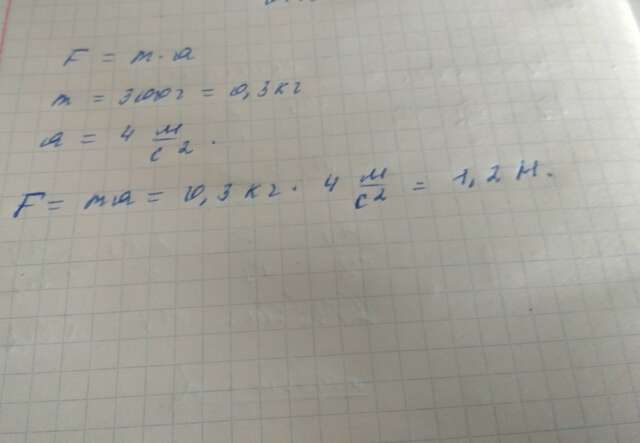 F = m · a
m = 300г = 0,3 кг
a = 4 м/с².
F = ma = 0,3 кг · 4 м/с² = 1,2 Н.